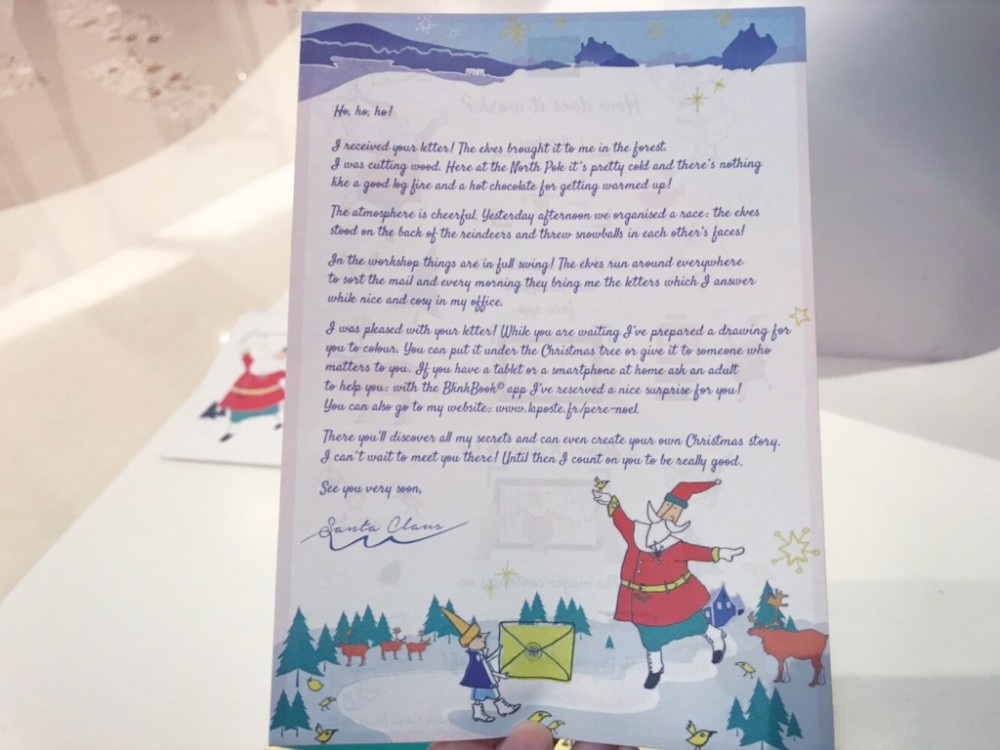 Ho, ho, ho!
I received your letter! The elves brought it to me in the forest.
I was cutting wood. Here at the North Pole it's pretty cold and there's nothing
like a good log fire and a hot chocolate for getting warmed up!
The atmosphere is cheerful. Yesterday afternoon we organised a race: the elves
stood on the back of the reindeers and threw snowballs in each other's faces!
In the workshop things are in full swing! The elves run around everywhere
to sort the mail and every morning they bring me the letters which I answer
while nice and cosy in my office.
I was pleased with your letter! While you are waiting I've prepared a drawing for
you to colour. You can put it under the Christmas tree or give it to someone who
matters to you. If you have a tablet or a smartphone at home ask an adult
to help you: with the BlinkBook© app I've reserved a nice surprise for you!
You can also go to my website: www.laposte.fr/pere-noel.
There you'll discover all my secrets and can even create your own Christmas story.
I can't wait to meet you there! Until then I count on you to be really good.
See you very soon,
Santa Claus
How does it work?